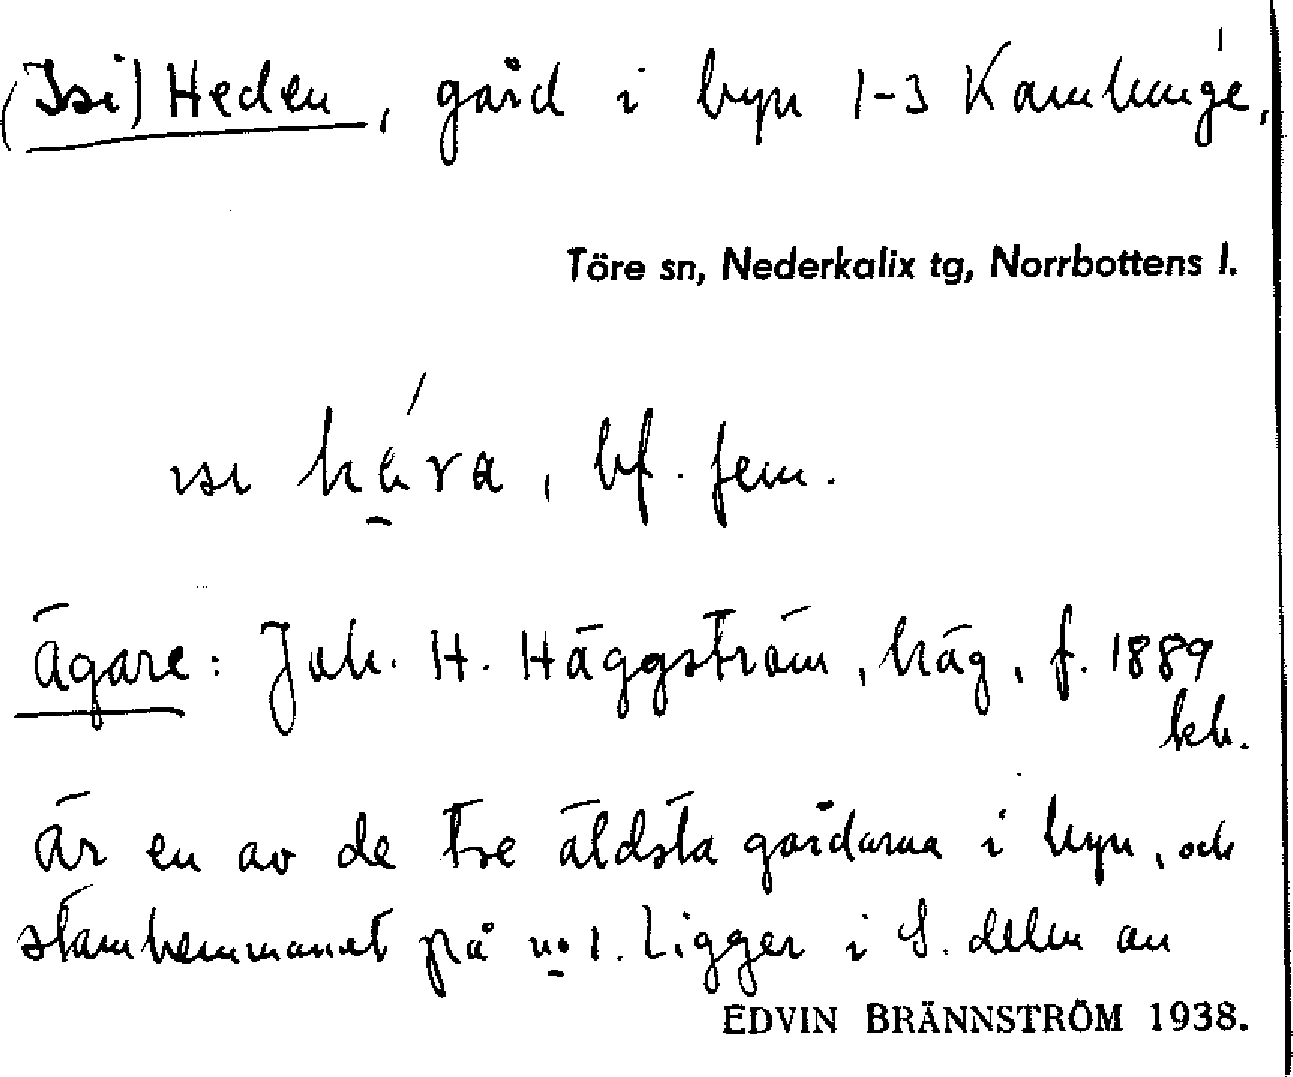 (Isi) Heden, gård i byn 1-3 Kamlunge,
Töre sn, Nederkalix tg, Norrbottens l.
bf. fem.
ägare: Joh. H. Häggström, häg, f. 1889
är en av de tre äldsta gårdarna i byn, och
stamhemmanet på no 1. Ligger i S. delen av
EDVIN BRÄNNSTRÖM 1938.